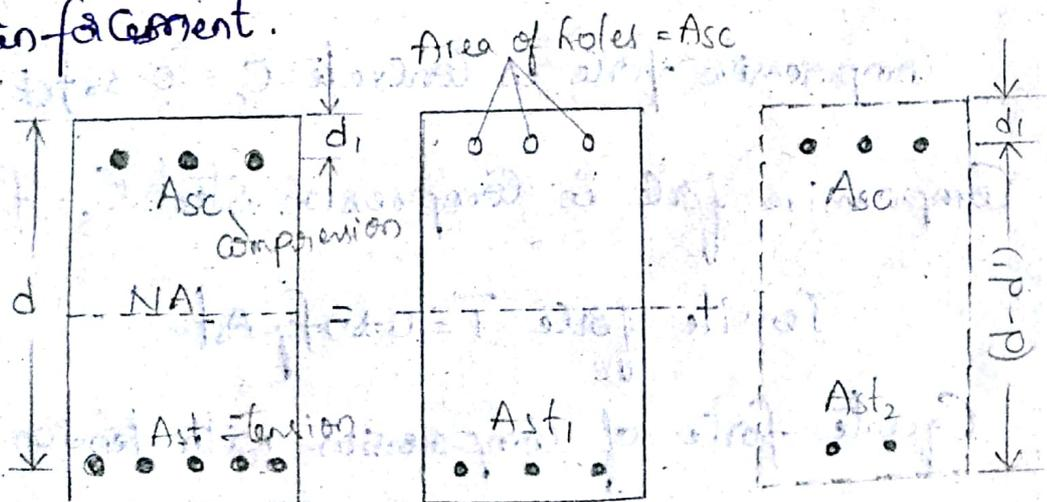 forcement.
Area of holes = Asc
d1
Asc
compression
d
NA
=
+
Ast = tension.
Ast1
d1
Asc
(d-d1)
Ast2